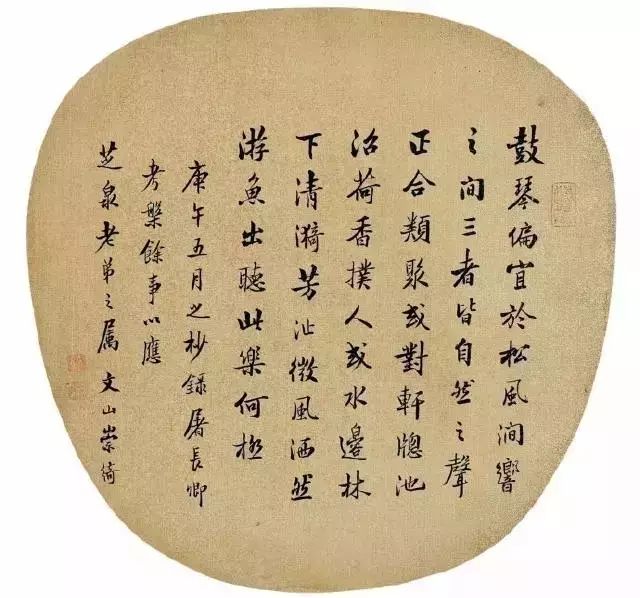 鼓琴偏宜於松風澗響
之間三者皆自然之聲
正合類聚或對軒窻池
沼荷香撲人或水邊林
下清漪芳沚微風洒然
游魚出聽此樂何極
庚午五月之杪錄屠長卿
考槃餘事以應
芝泉老弟之屬 文山崇綺